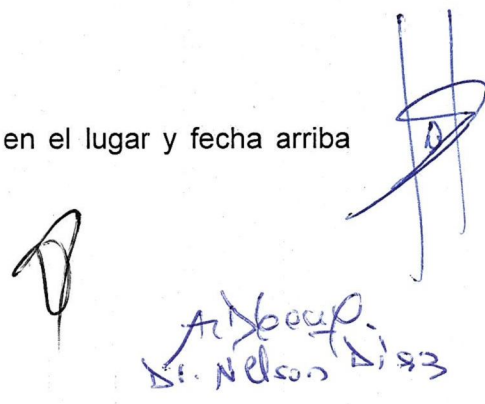 en el lugar y fecha arriba
Dr. Nelson Diaz